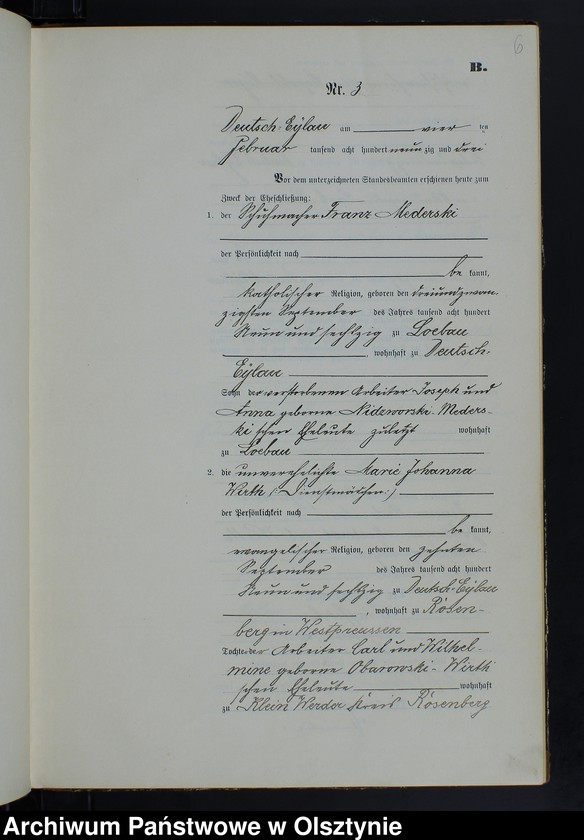 6
B.
Nr. 3
Deutsch-Eylau am vier ten
Februar tausend acht hundert neunzig und drei
Vor dem unterzeichneten Standesbeamten erschienen heute zum
Zweck der Eheschließung:
1. der Schuhmacher Franz Mederski
der Persönlichkeit nach
be kannt,
katholischer Religion, geboren den dreiundzwan-
zigsten September des Jahres tausend acht hundert
Neun und sechzig zu Loebau
, wohnhaft zu Deutsch-
Eylau
Sohn der verstorbenen Arbeiter Joseph und
Anna geborne Nidzworski-Meders-
ki'schen Eheleute zuletzt wohnhaft
zu Loebau
2. die unverehelichte Marie Johanna
Wirth (: Dienstmädchen :)
der Persönlichkeit nach
be kannt,
evangelischer Religion, geboren den zehnten
September des Jahres tausend acht hundert
Neun und sechzig zu Deutsch-Eylau
, wohnhaft zu Rosen-
berg in Westpreussen
Tochter der Arbeiter Carl und Wilhel-
mine geborne Obarowski-Wirth
schen Eheleute wohnhaft
zu Klein Werder Kreis Rosenberg
Archiwum Państwowe w Olsztynie